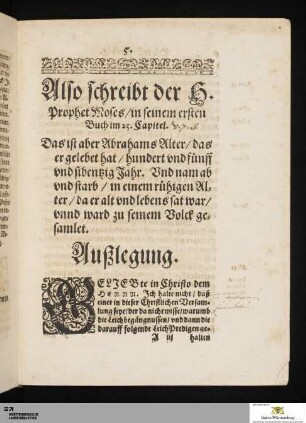 5.
Also schreibt der H.
Prophet Moses/ in seinem ersten
Buch im 25. Capitel. v. 7. 8.
Das ist aber Abrahams Alter/ das
er gelebet hat/ hundert vnd fünff
vnd sibentzig Jahr. Vnd nam ab
vnd starb/ in einem rühigen Al-
ter/ da er alt vnd lebens sat war/
vnnd ward zu seinem Volck ge-
samlet.
Außlegung.
GELIEBte in Christo dem
HERRN. Ich halte nicht/ daß
einer in dieser Christlichen Versam-
lung seye/ der da nicht wisse/ warumb
die Leichbegängnussen/ vnd dann die
darauff folgende Leich Predigen ge-
A iij halten
Baden-Württemberg